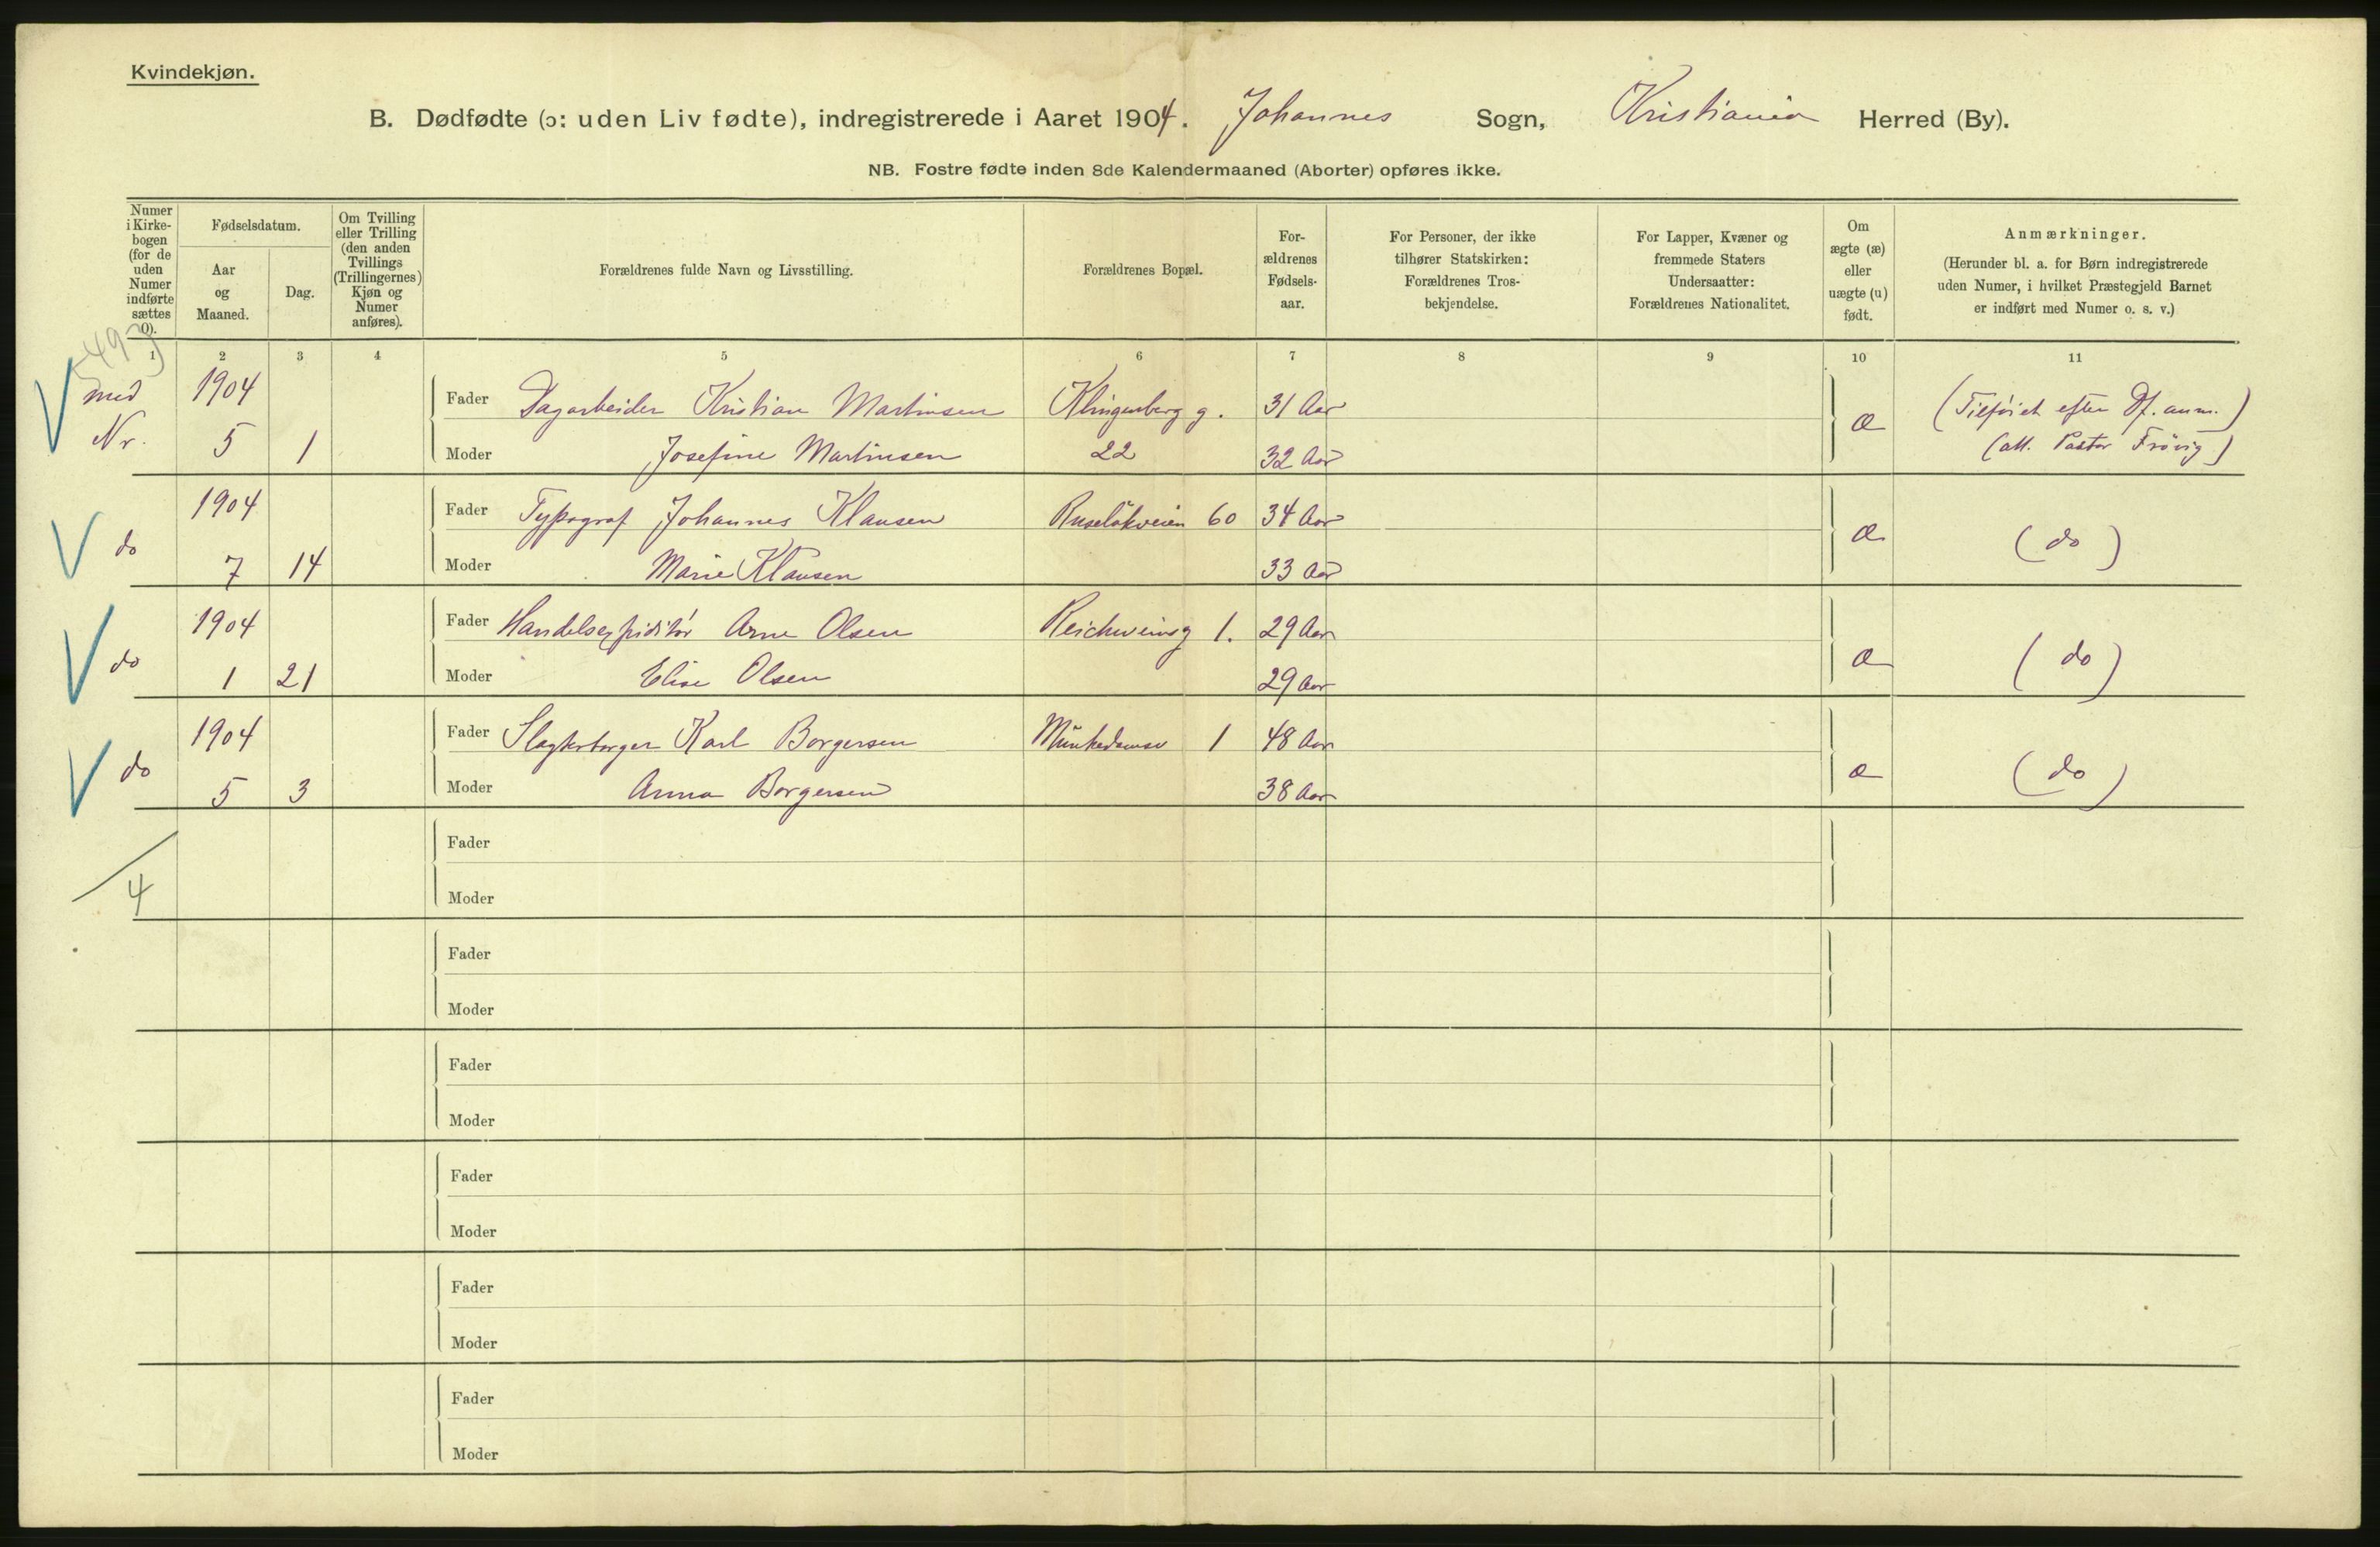 Kvindekjøn.
B. Dødfødte (ɔ: uden Liv fødte), indregistrerede i Aaret 1904. Johannes Sogn, Kristiania Herred (By).
NB. Fostre fødte inden 8de Kalendermaaned (Aborter) opføres ikke.
Numer
i Kirke-
bogen
(for de
uden
Numer
indførte
sættes
0).
Fødselsdatum.
Aar
og
Maaned.
Dag.
Om Tvilling
eller Trilling
(den anden
Tvillings
(Trillingernes)
Kjøn og
Numer
anføres).
Forældrenes fulde Navn og Livsstilling.
Forældrenes Bopæl.
For-
ældrenes
Fødsels-
aar.
For Personer, der ikke
tilhører Statskirken:
Forældrenes Tros-
bekjendelse.
For Lapper, Kvæner og
fremmede Staters
Undersaatter:
Forældrenes Nationalitet.
Om
ægte (æ)
eller
uægte (u)
født.
Anmærkninger.
(Herunder bl. a. for Børn indregistrerede
uden Numer, i hvilket Præstegjeld Barnet
er indført med Numer o. s. v.)
1 2 3 4 5 6 7 8 9 10 11
1904 Fader Dagarbeider Kristian Martinsen Klingenberg g. 31 Aar (Tilføiet efter Df. anm.)
Nr. 5 1 Moder Josefine Martinsen 22 32 Aar æ (att. Pastor Frövig)
1904 Fader Typograf Johannes Klausen Ruselökveien 60 34 Aar
do 7 14 Moder Marie Klausen 33 Aar æ (do)
1904 Fader Handelsexpiditör Arne Olsen Reichweinsg 1. 29 Aar
do 1 21 Moder Elise Olsen 29 Aar æ (do)
1904 Fader Karl Borgersen Munkedamsv 1 48 Aar
do 5 3 Moder Anna Borgersen 38 Aar æ (do)
Fader
4 Moder
Fader
Moder
Fader
Moder
Fader
Moder
Fader
Moder
Fader
Moder